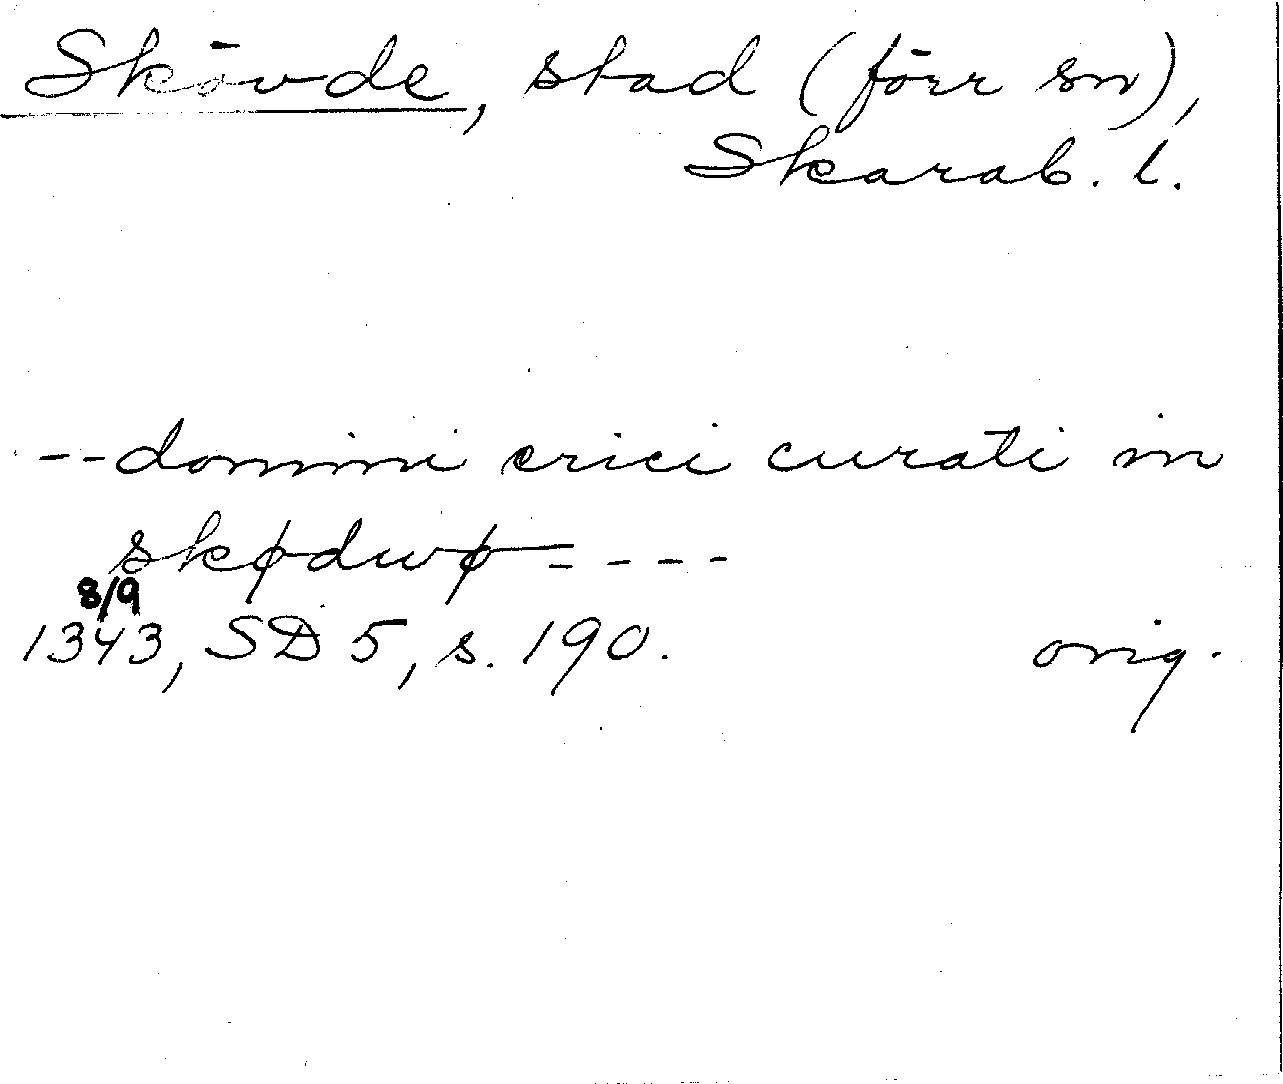 Skövde, stad (förr sn),
Skarab. l.
--domini erici curati in
skødwø----
8/9
1343, SD 5, s. 190. orig.